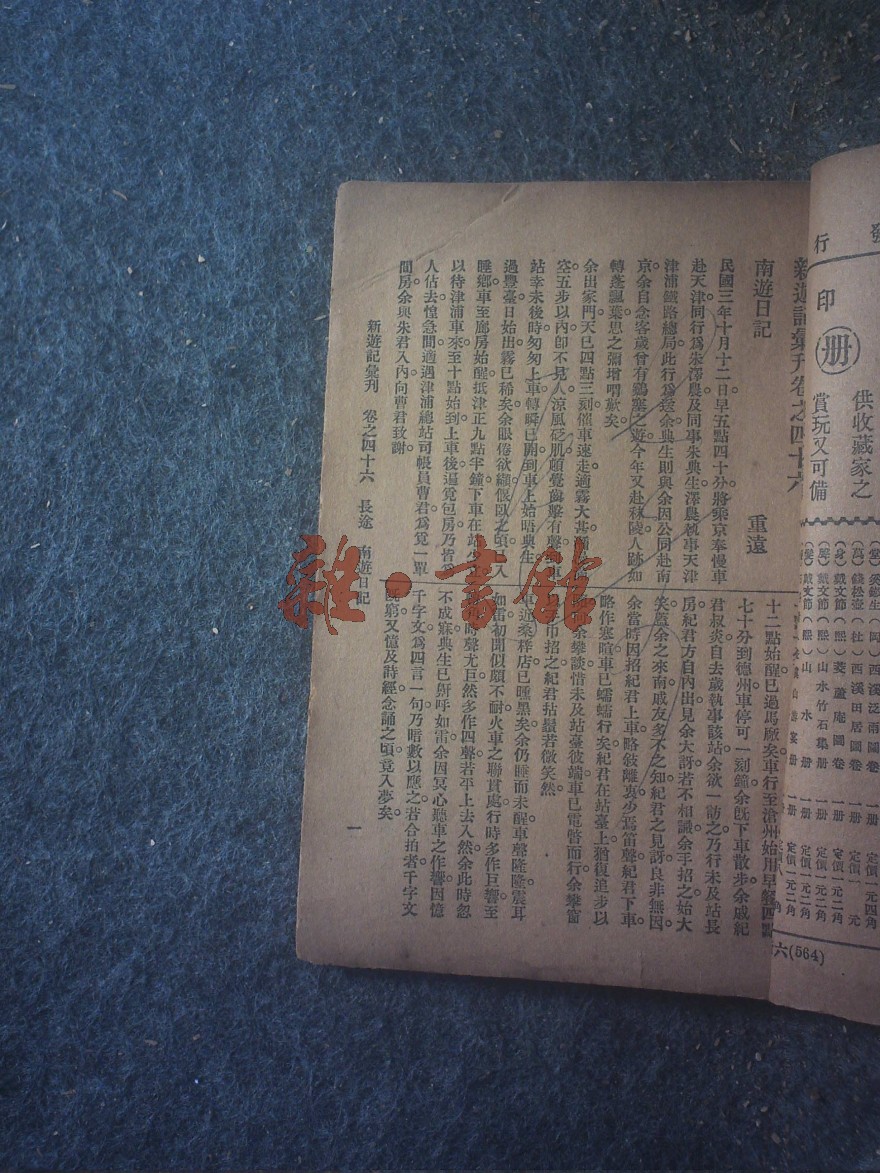 新遊記彙刊卷之四十六
南遊日記
重遠
民國三年十月十二日早五點四十分將乘京奉慢車
赴天津同行爲朱澤農及同事朱典生澤農執事天津
津浦鐵路總局此行爲送余典生則與余因公同赴南
京余自念客歲曾有鷄塞之遊今年又赴秣陵人跡如
轉蓬飄葉思之彌增喟歎矣
余出家門天已四點三刻催車速走適霧大甚
空五步以內卽不見人涼風砭肌頗覺齒擊有聲
站幸未後時匆匆上車轉瞬已開到車上始晤典生
過豐臺日始出霧已稀矣余眼倦欲纈偃臥之頃已入
睡鄉車至廊房始醒抵津正九點半鐘下車在站
以待津浦車來至十點始到上車後逼覓包房乃皆爲
人佔去惶急間適遇津浦總站司帳員曹君爲覓一單
間房余與朱君入內向曹君致謝
十二點始醒已過馬廠矣車行至滄州始用早餐四點
七十分到德州車停可一刻鐘余旣下車散步余戚紀
君叔炎自去歲執事該站余欲一訪之乃行未及站長
房紀君方自內出見余大訝若不相識余手招之始大
笑蓋余之來南戚友多不之知紀君之見訝良非無因
余當時因招紀君上車略敍離衷少焉笛聲紀君下車
略作寒暄車已蠕蠕行矣紀君在站臺上猶復追步以
余攀談惜未及站臺彼端車已電瞥而行余攀窗
巾招之紀君拈鬚若微笑然
近桑梓店已曛黑矣余仍睡而未醒車聲隆隆震耳
如雷初聞似頗不耐火車之聯貫處行時多作巨響至
時聲尤巨然多作四聲若平上去入然余此時忽
不成寐典生已鼾呼如雷余因冥心聽車之作響因憶
千字文爲四言一句乃暗數以應之若合拍者千字文
旣窮又憶及詩經念誦之頃竟入夢矣
新遊記彙刊 卷之四十六 長途 南遊日記
一
發
行
印
册
供收藏家之
賞玩又可備
西溪泛雨圖卷
錢松壺（杜）西溪田居圖卷 一册 定價一元
戴文節（熙）菱蘆庵圖卷 一册 定價一元二角
戴文節（熙）山水竹石集册 一册 定價一元二角
戴文節（熙）山水册 一册 定價一元二角
六(564)
雜·書館